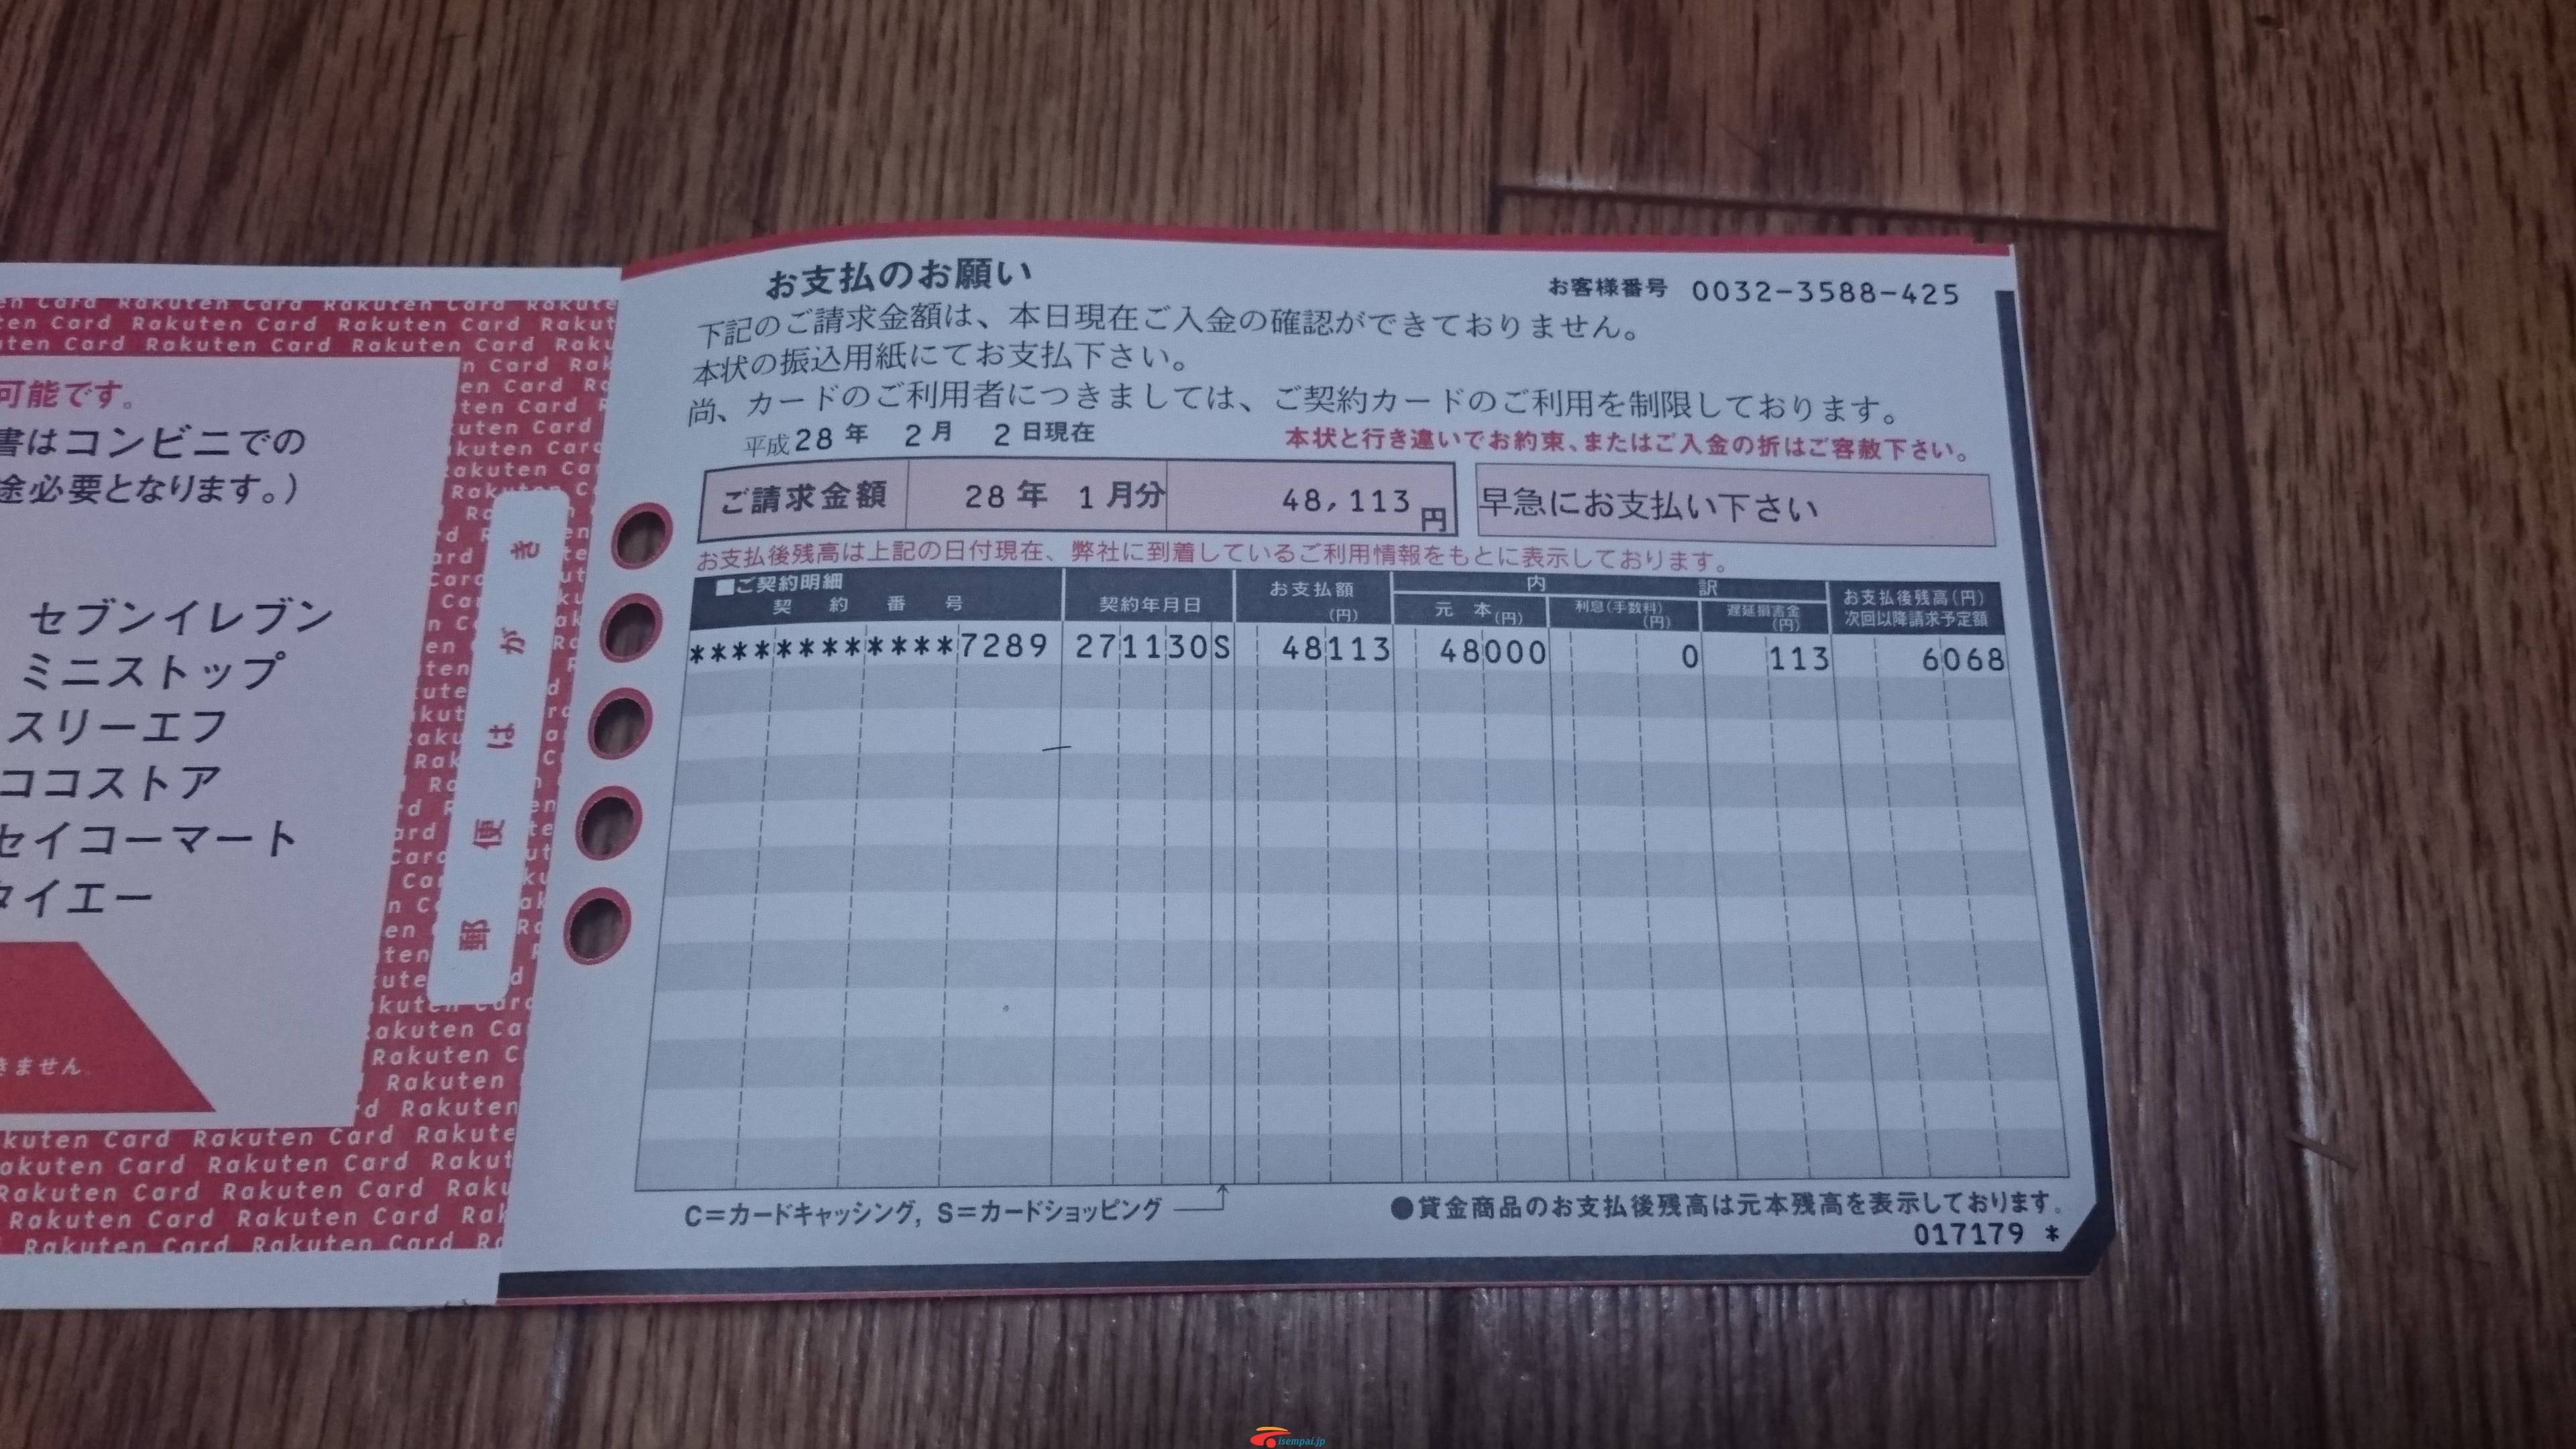 可能です。
書はコンビニでの
途必要となります。）
セブンイレブン
ミニストップ
スリーエフ
ココストア
セイコーマート
タイエー
きません
郵便はがき
Rakuten Card Rakuten Card Rakuten Card
お支払のお願い
お客様番号 0032-3588-425
下記のご請求金額は、本日現在ご入金の確認ができておりません。
本状の振込用紙にてお支払下さい。
尚、カードのご利用者につきましては、ご契約カードのご利用を制限しております。
平成28年 2月 2日現在
本状と行き違いでお約束、またはご入金の折はご容赦下さい。
ご請求金額 28年 1月分 48,113円 早急にお支払い下さい
お支払後残高は上記の日付現在、弊社に到着しているご利用情報をもとに表示しております。
■ご契約明細
契約番号 契約年月日 お支払額(円) 内訳 お支払後残高(円)
元本(円) 利息(手数料)(円) 遅延損害金(円) 次回以降請求予定額
************7289 271130S 48113 48000 0 113 6068
C=カードキャッシング, S=カードショッピング
●貸金商品のお支払後残高は元本残高を表示しております。
017179 *
isempai.jp